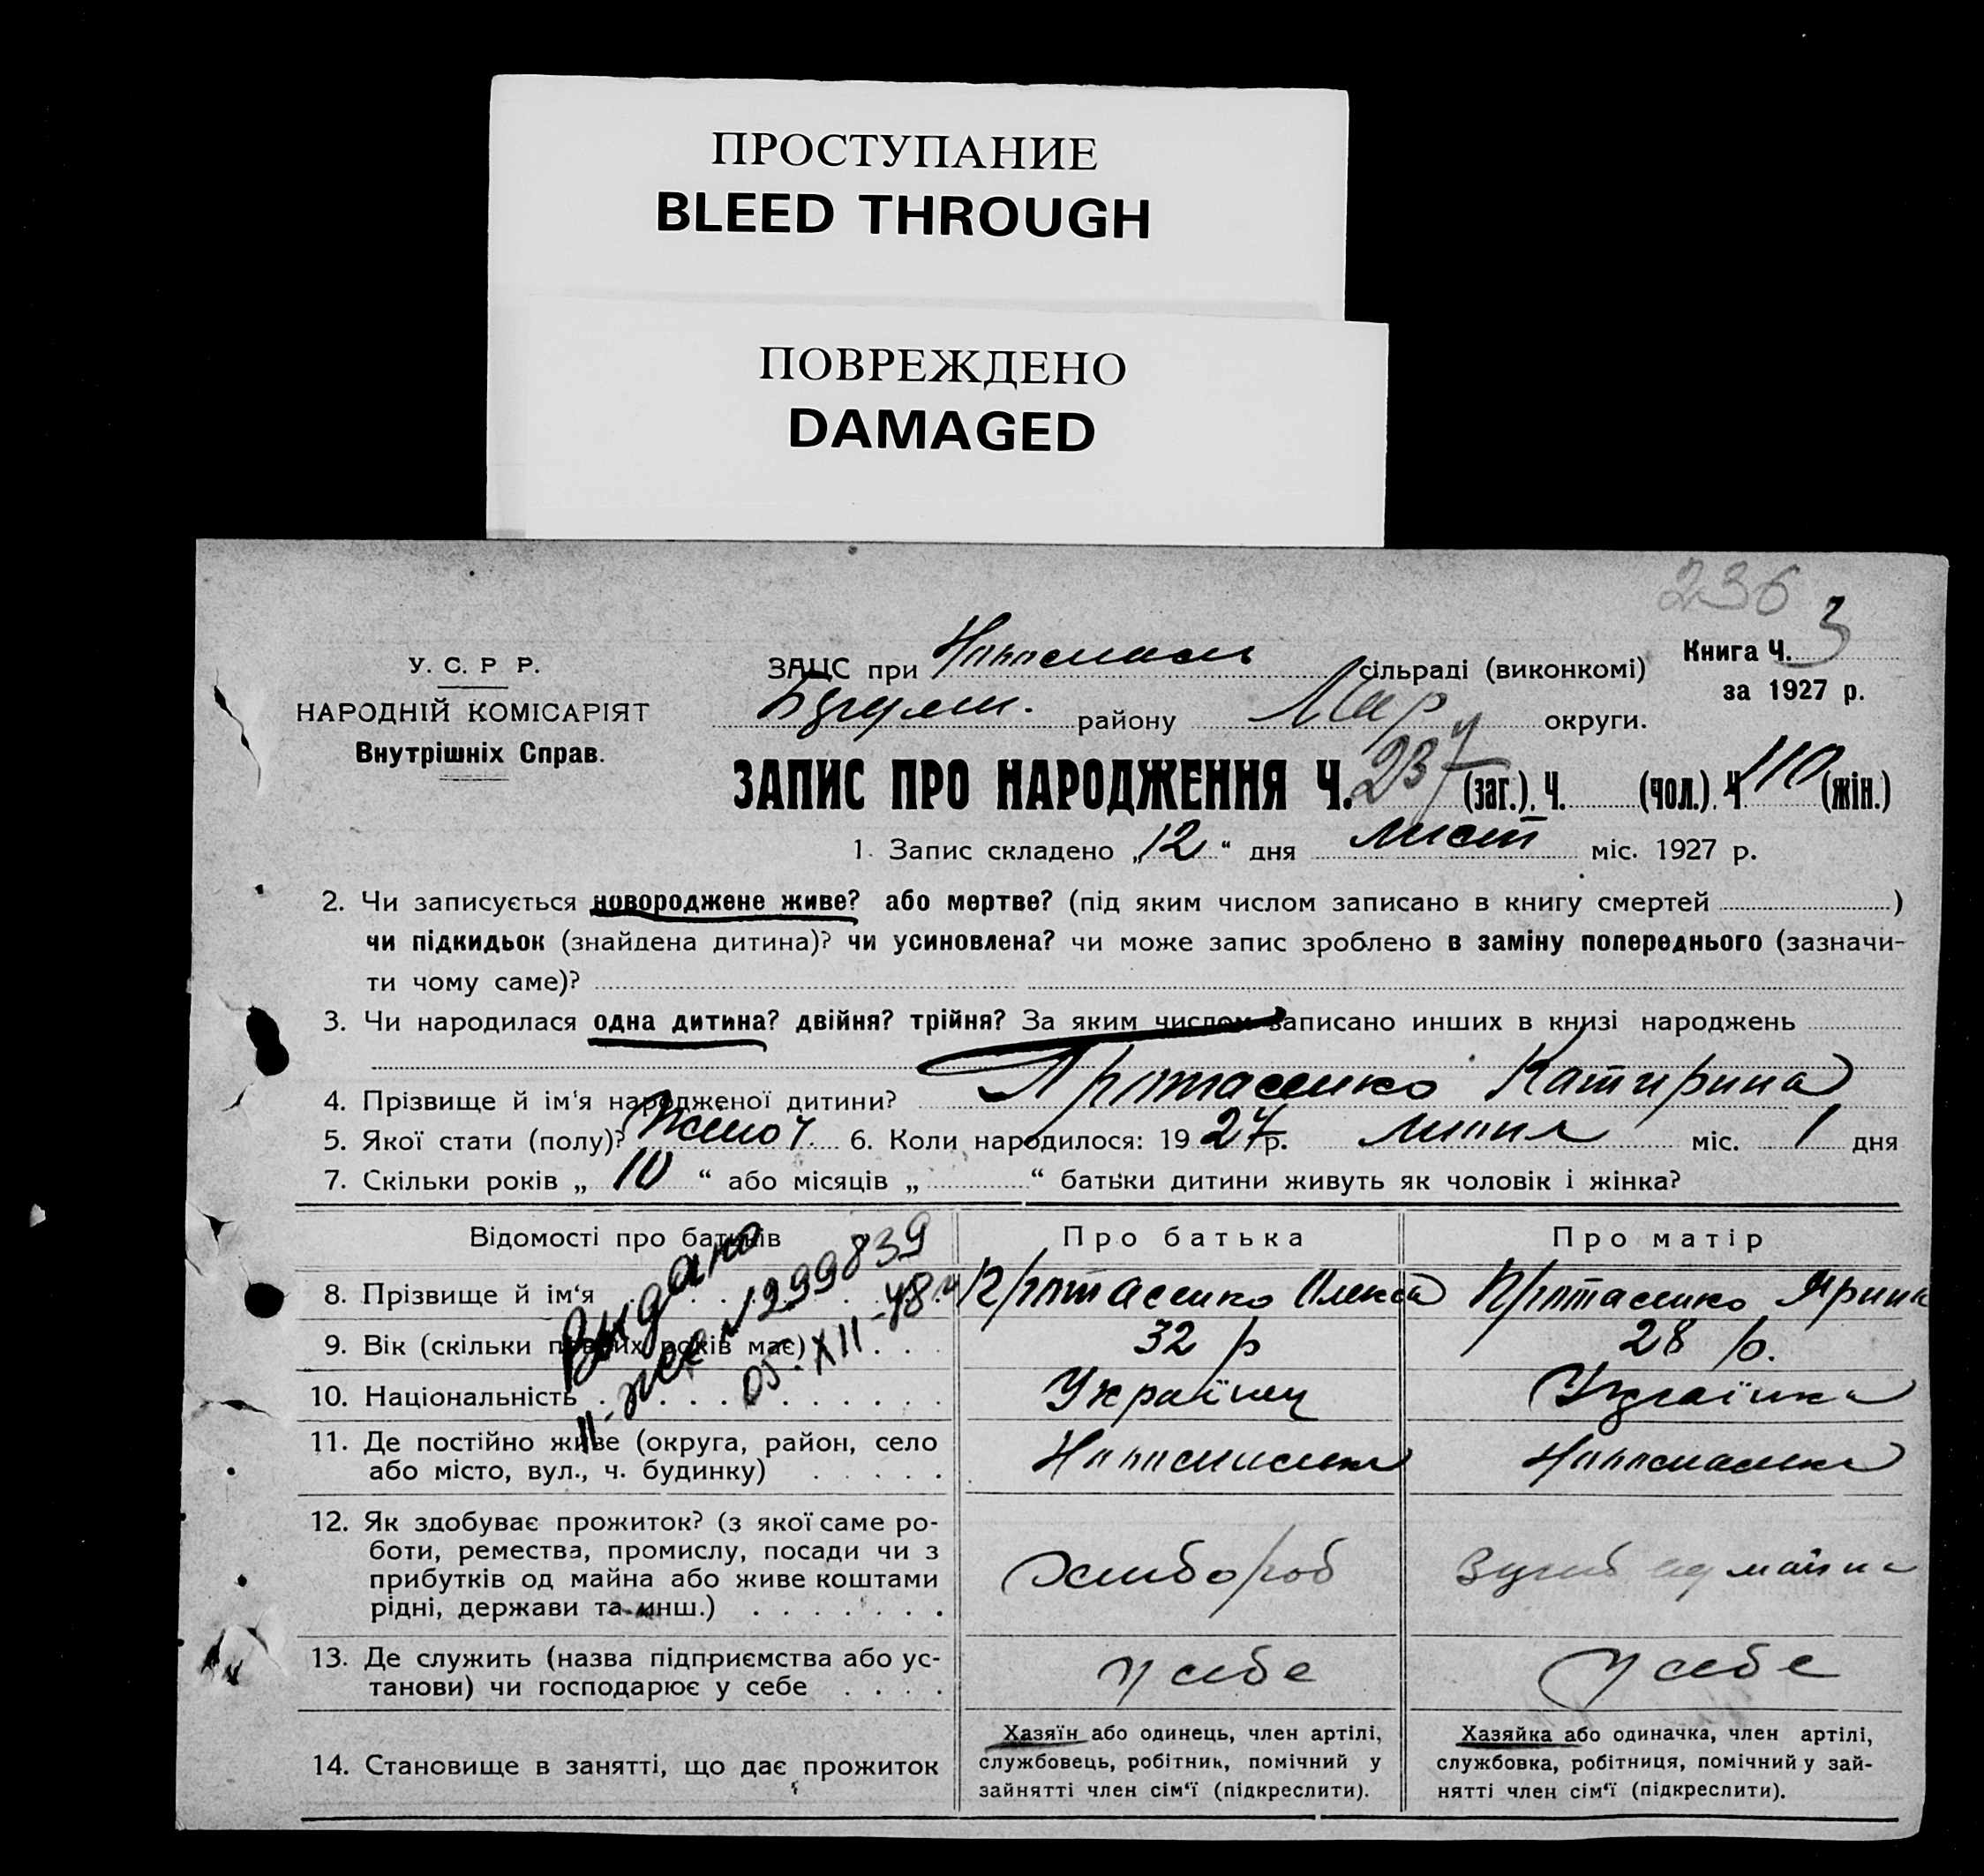 ПРОСТУПАНИЕ
BLEED THROUGH
ПОВРЕЖДЕНО
DAMAGED
236
У. С. Р Р.
НАРОДНІЙ КОМІСАРІЯТ
Внутрішніх Справ.
ЗАЦС при сільраді (виконкомі)
району округи.
Книга Ч. 3
за 1927 р.
ЗАПИС ПРО НАРОДЖЕННЯ Ч. 237 (заг.). Ч. (чол.). Ч 110 (жін.)
1. Запис складено „ 12 “ дня лист міс. 1927 р.
2. Чи записується новороджене живе? або мертве? (під яким числом записано в книгу смертей )
чи підкидьок (знайдена дитина)? чи усиновлена? чи може запис зроблено в заміну попереднього (зазначи-
ти чому саме)?
3. Чи народилася одна дитина? двійня? трійня? За яким числом записано инших в книзі народжень
4. Прізвище й ім'я народженої дитини? Протасенко Катирина
5. Якої стати (полу)? Жіноч. 6. Коли народилося: 19 27 р. липня міс. 1 дня
7. Скільки років „ 10 “ або місяців „ “ батьки дитини живуть як чоловік і жінка?
Відомості про батьків Про батька Про матір
8. Прізвище й ім'я Протасенко Олекса Протасенко Ярина
9. Вік (скільки повних років має) 32 р 28 р.
10. Національність Українец Українка
Видано
II-жск №299839
05-XII-48 г
11. Де постійно живе (округа, район, село
або місто, вул., ч. будинку)
12. Як здобуває прожиток? (з якої саме ро-
боти, ремества, промислу, посади чи з
прибутків од майна або живе коштами
рідні, держави та инш.)
Хлібороб майна
13. Де служить (назва підприємства або ус-
танови) чи господарює у себе
у себе у себе
14. Становище в занятті, що дає прожиток
Хазяїн або одинець, член артілі,
службовець, робітник, помічний у
зайнятті член сім'ї (підкреслити).
Хазяйка або одиначка, член артілі,
службовка, робітниця, помічний у зай-
нятті член сім'ї (підкреслити).